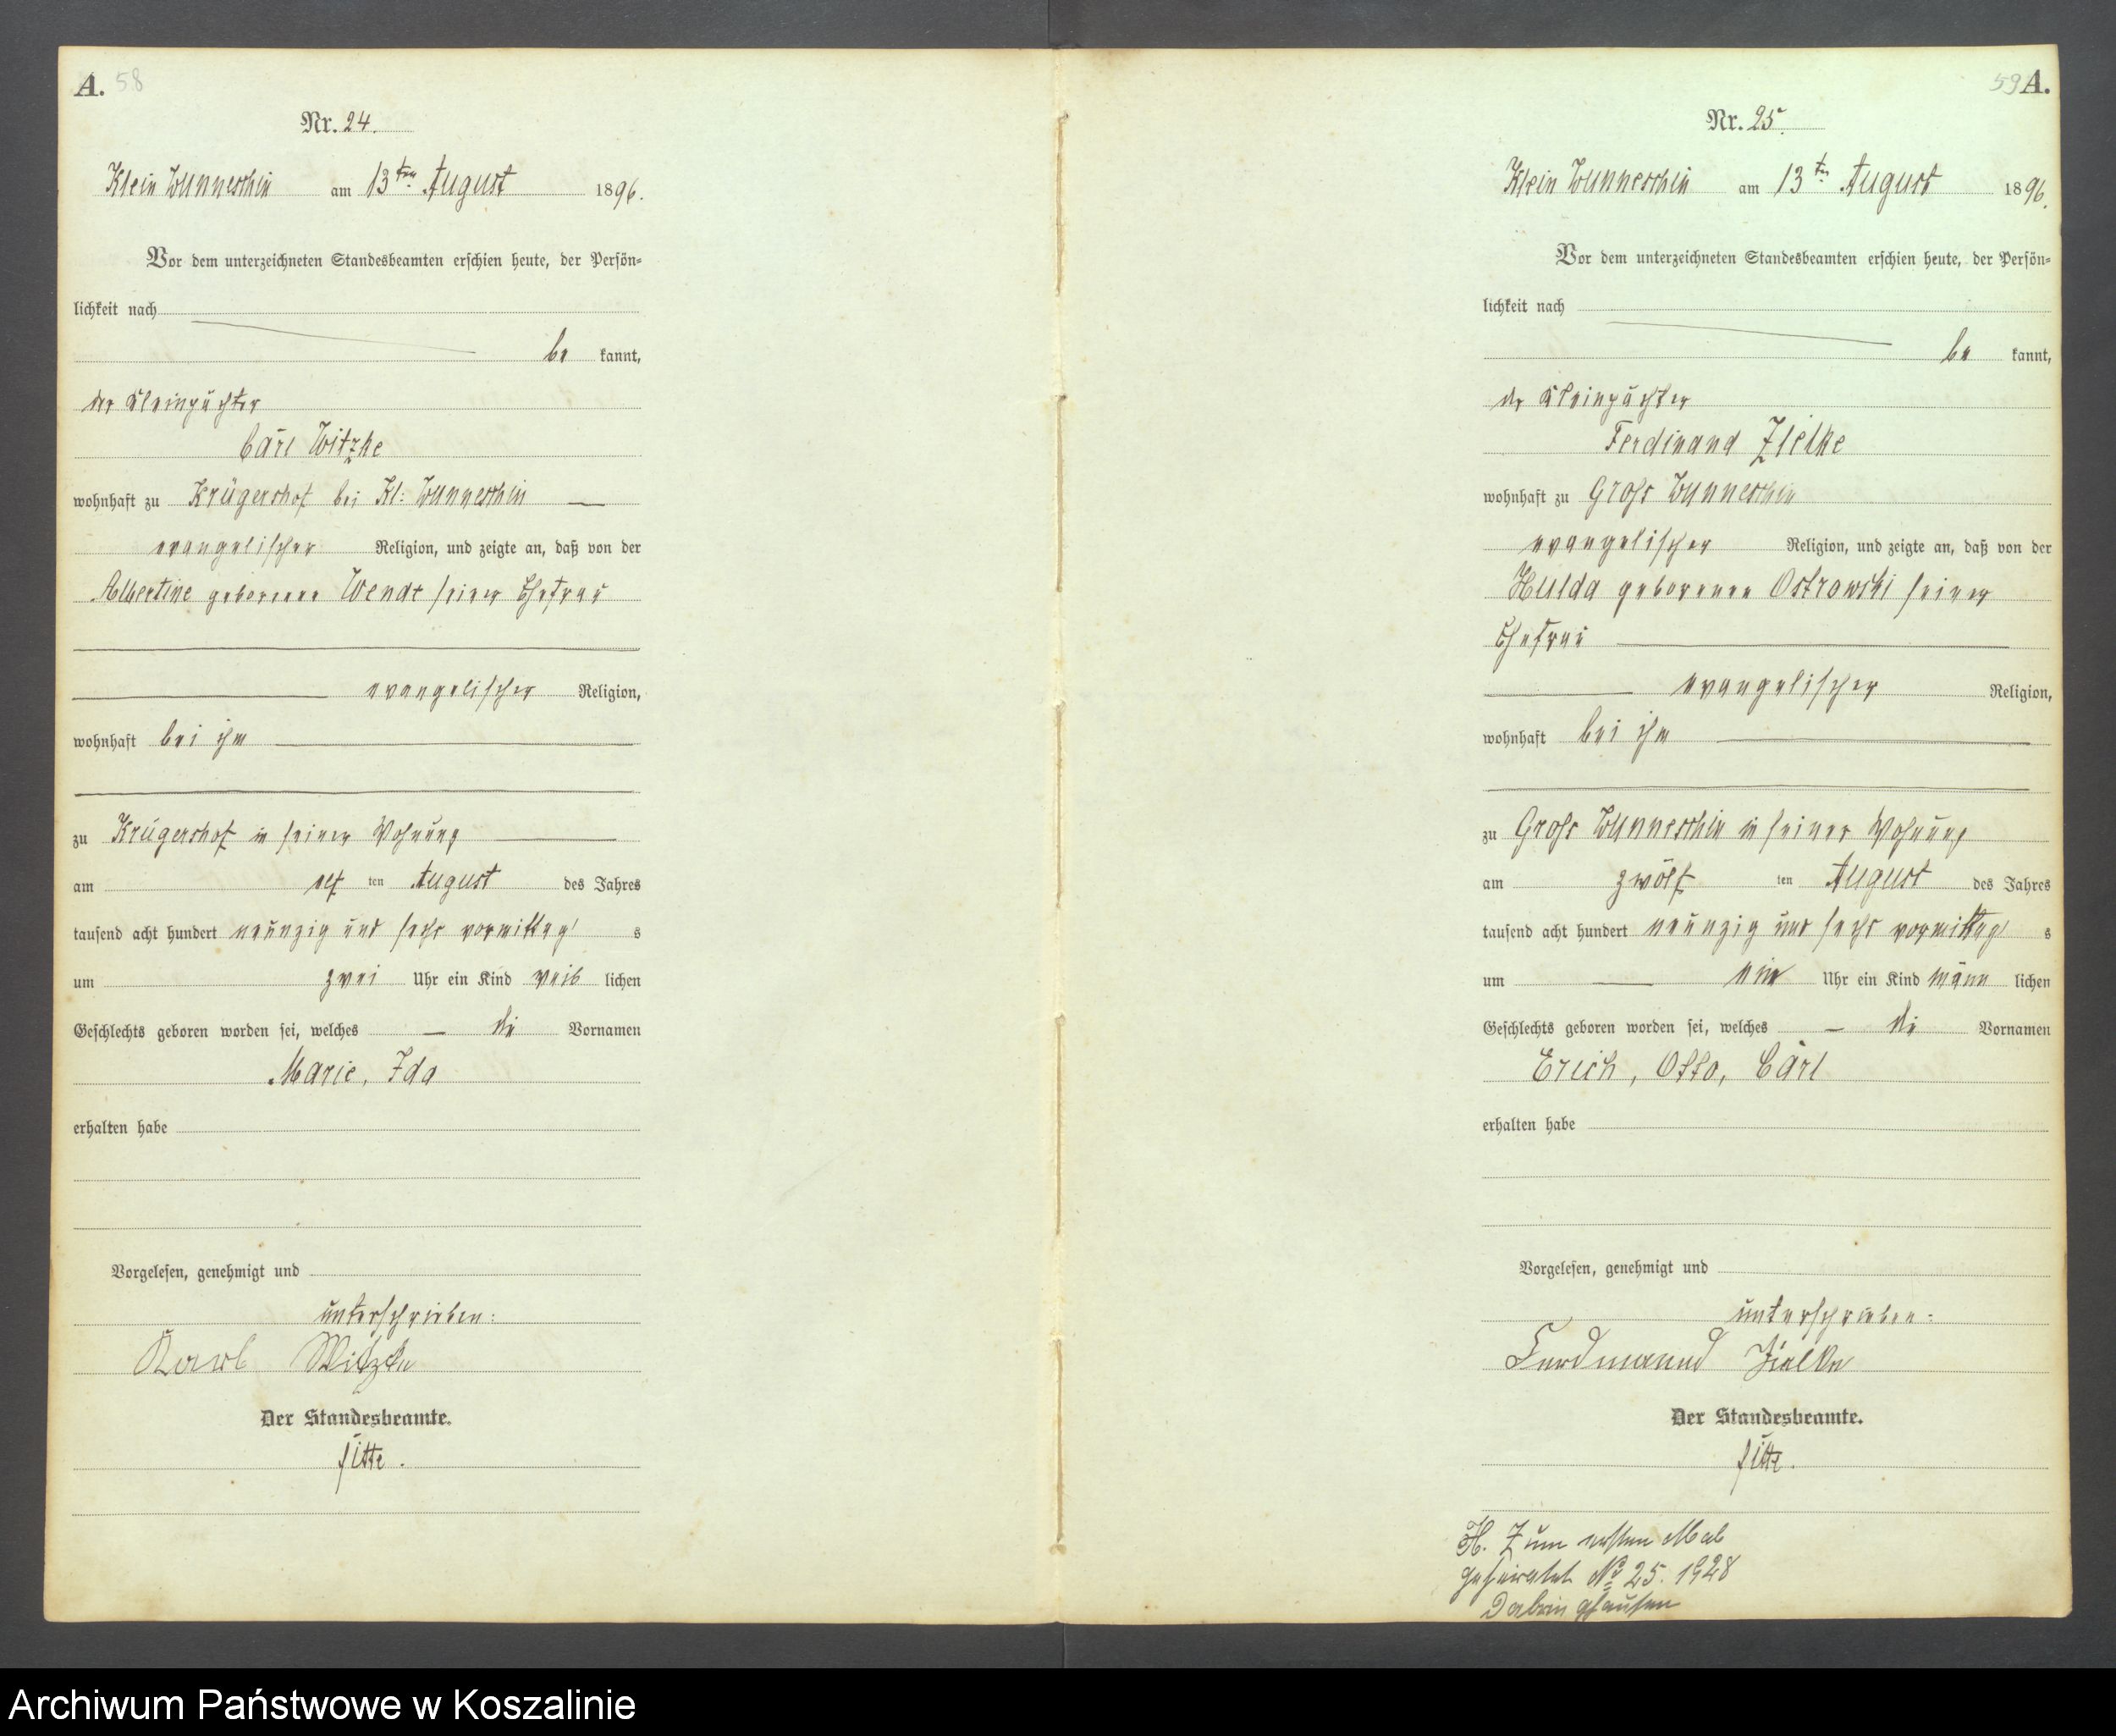 A. 58
Nr. 24.
Klein Wunneschin am 13ten August 1896.
Vor dem unterzeichneten Standesbeamten erschien heute, der Persön-
lichkeit nach
be kannt,
der Kleinpächter
Carl Witzke
wohnhaft zu Krügershof bei Kl: Wunneschin
evangelischer Religion, und zeigte an, daß von der
Albertine geborene Wendt seiner Ehefrau
evangelischer Religion,
wohnhaft bei ihm
zu Krügershof in seiner Wohnung
am elf ten August des Jahres
tausend acht hundert neunzig und sechs vormittag s
um zwei Uhr ein Kind weib lichen
Geschlechts geboren worden sei, welches die Vornamen
Marie, Ida
erhalten habe
Vorgelesen, genehmigt und
unterschrieben:
Karl Witzke
Der Standesbeamte.
59 A.
Nr. 25.
Klein Wunneschin am 13ten August 1896.
Vor dem unterzeichneten Standesbeamten erschien heute, der Persön-
lichkeit nach
be kannt,
der Kleinpächter
Ferdinand Zielke
wohnhaft zu Groß Wunneschin
evangelischer Religion, und zeigte an, daß von der
Hulda geborenen Ostrowski seiner
Ehefrau
evangelischer Religion,
wohnhaft bei ihm
zu Groß Wunneschin in seiner Wohnung
am zwölf ten August des Jahres
tausend acht hundert neunzig und sechs vormittag s
um ein Uhr ein Kind männ lichen
Geschlechts geboren worden sei, welches die Vornamen
Erich, Otto, Carl
erhalten habe
Vorgelesen, genehmigt und
unterschrieben:
Ferdinand Zielke
Der Standesbeamte.
H. Zum ersten Mal
geheiratet No 25. 1928
Dabringhausen
Archiwum Państwowe w Koszalinie